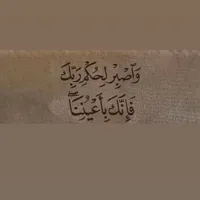 وَاصْبِرْ لِحُكْمِ رَبِّكَ
فَإِنَّكَ بِأَعْيُنِنَا ۖ